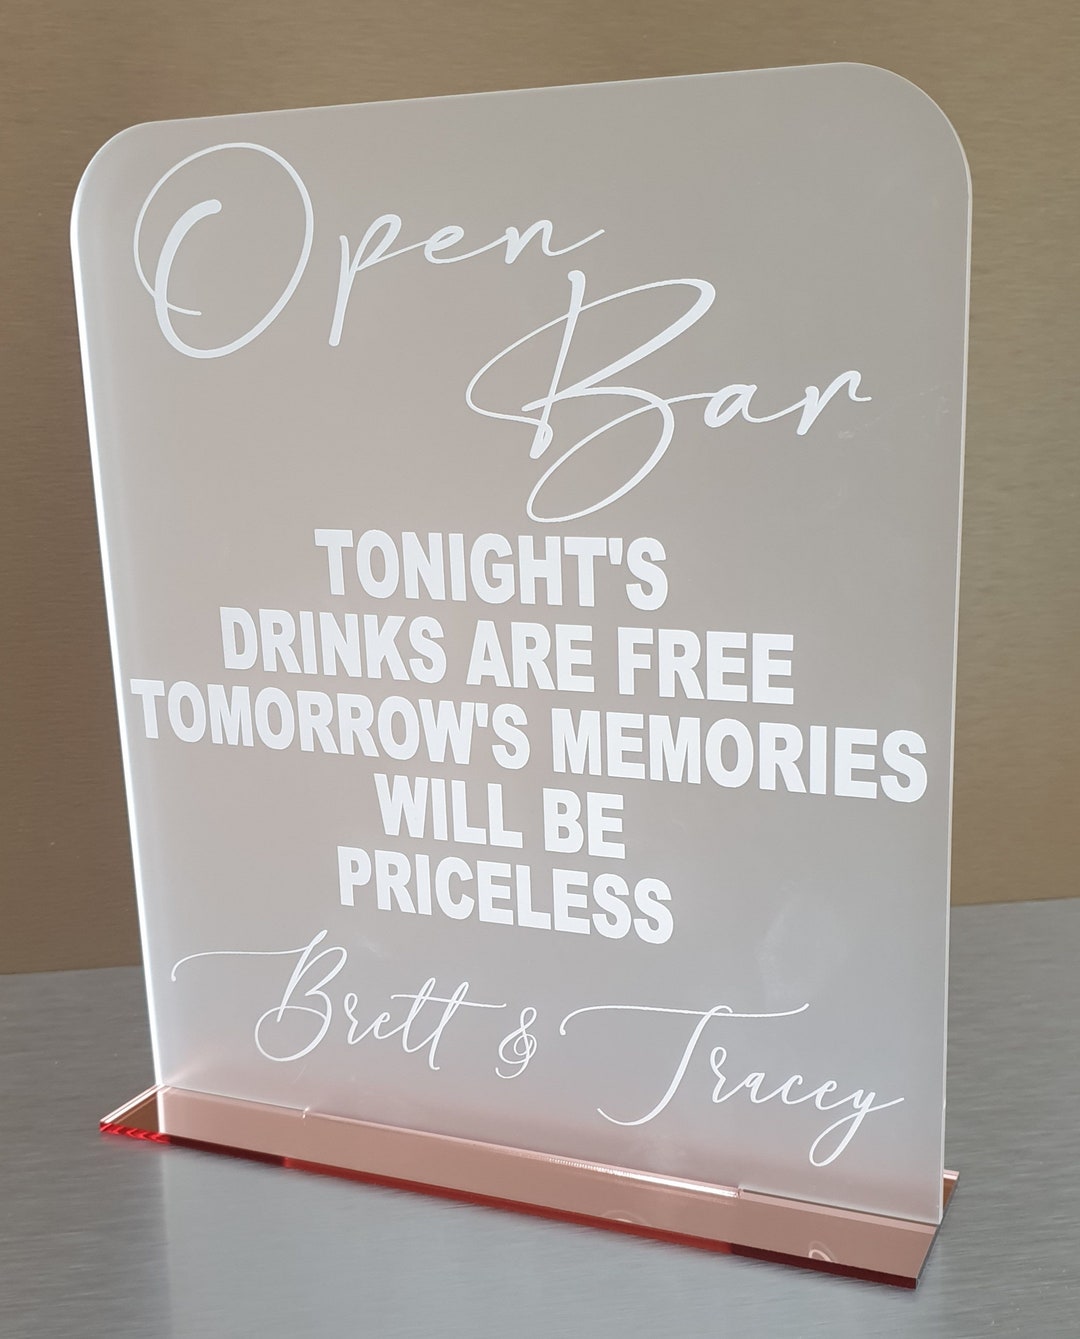 Open
Bar
TONIGHT'S
DRINKS ARE FREE
TOMORROW'S MEMORIES
WILL BE
PRICELESS
Brett & Tracey